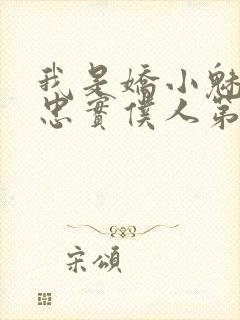 我是嬌小魅
忠實僕人第
宋頌